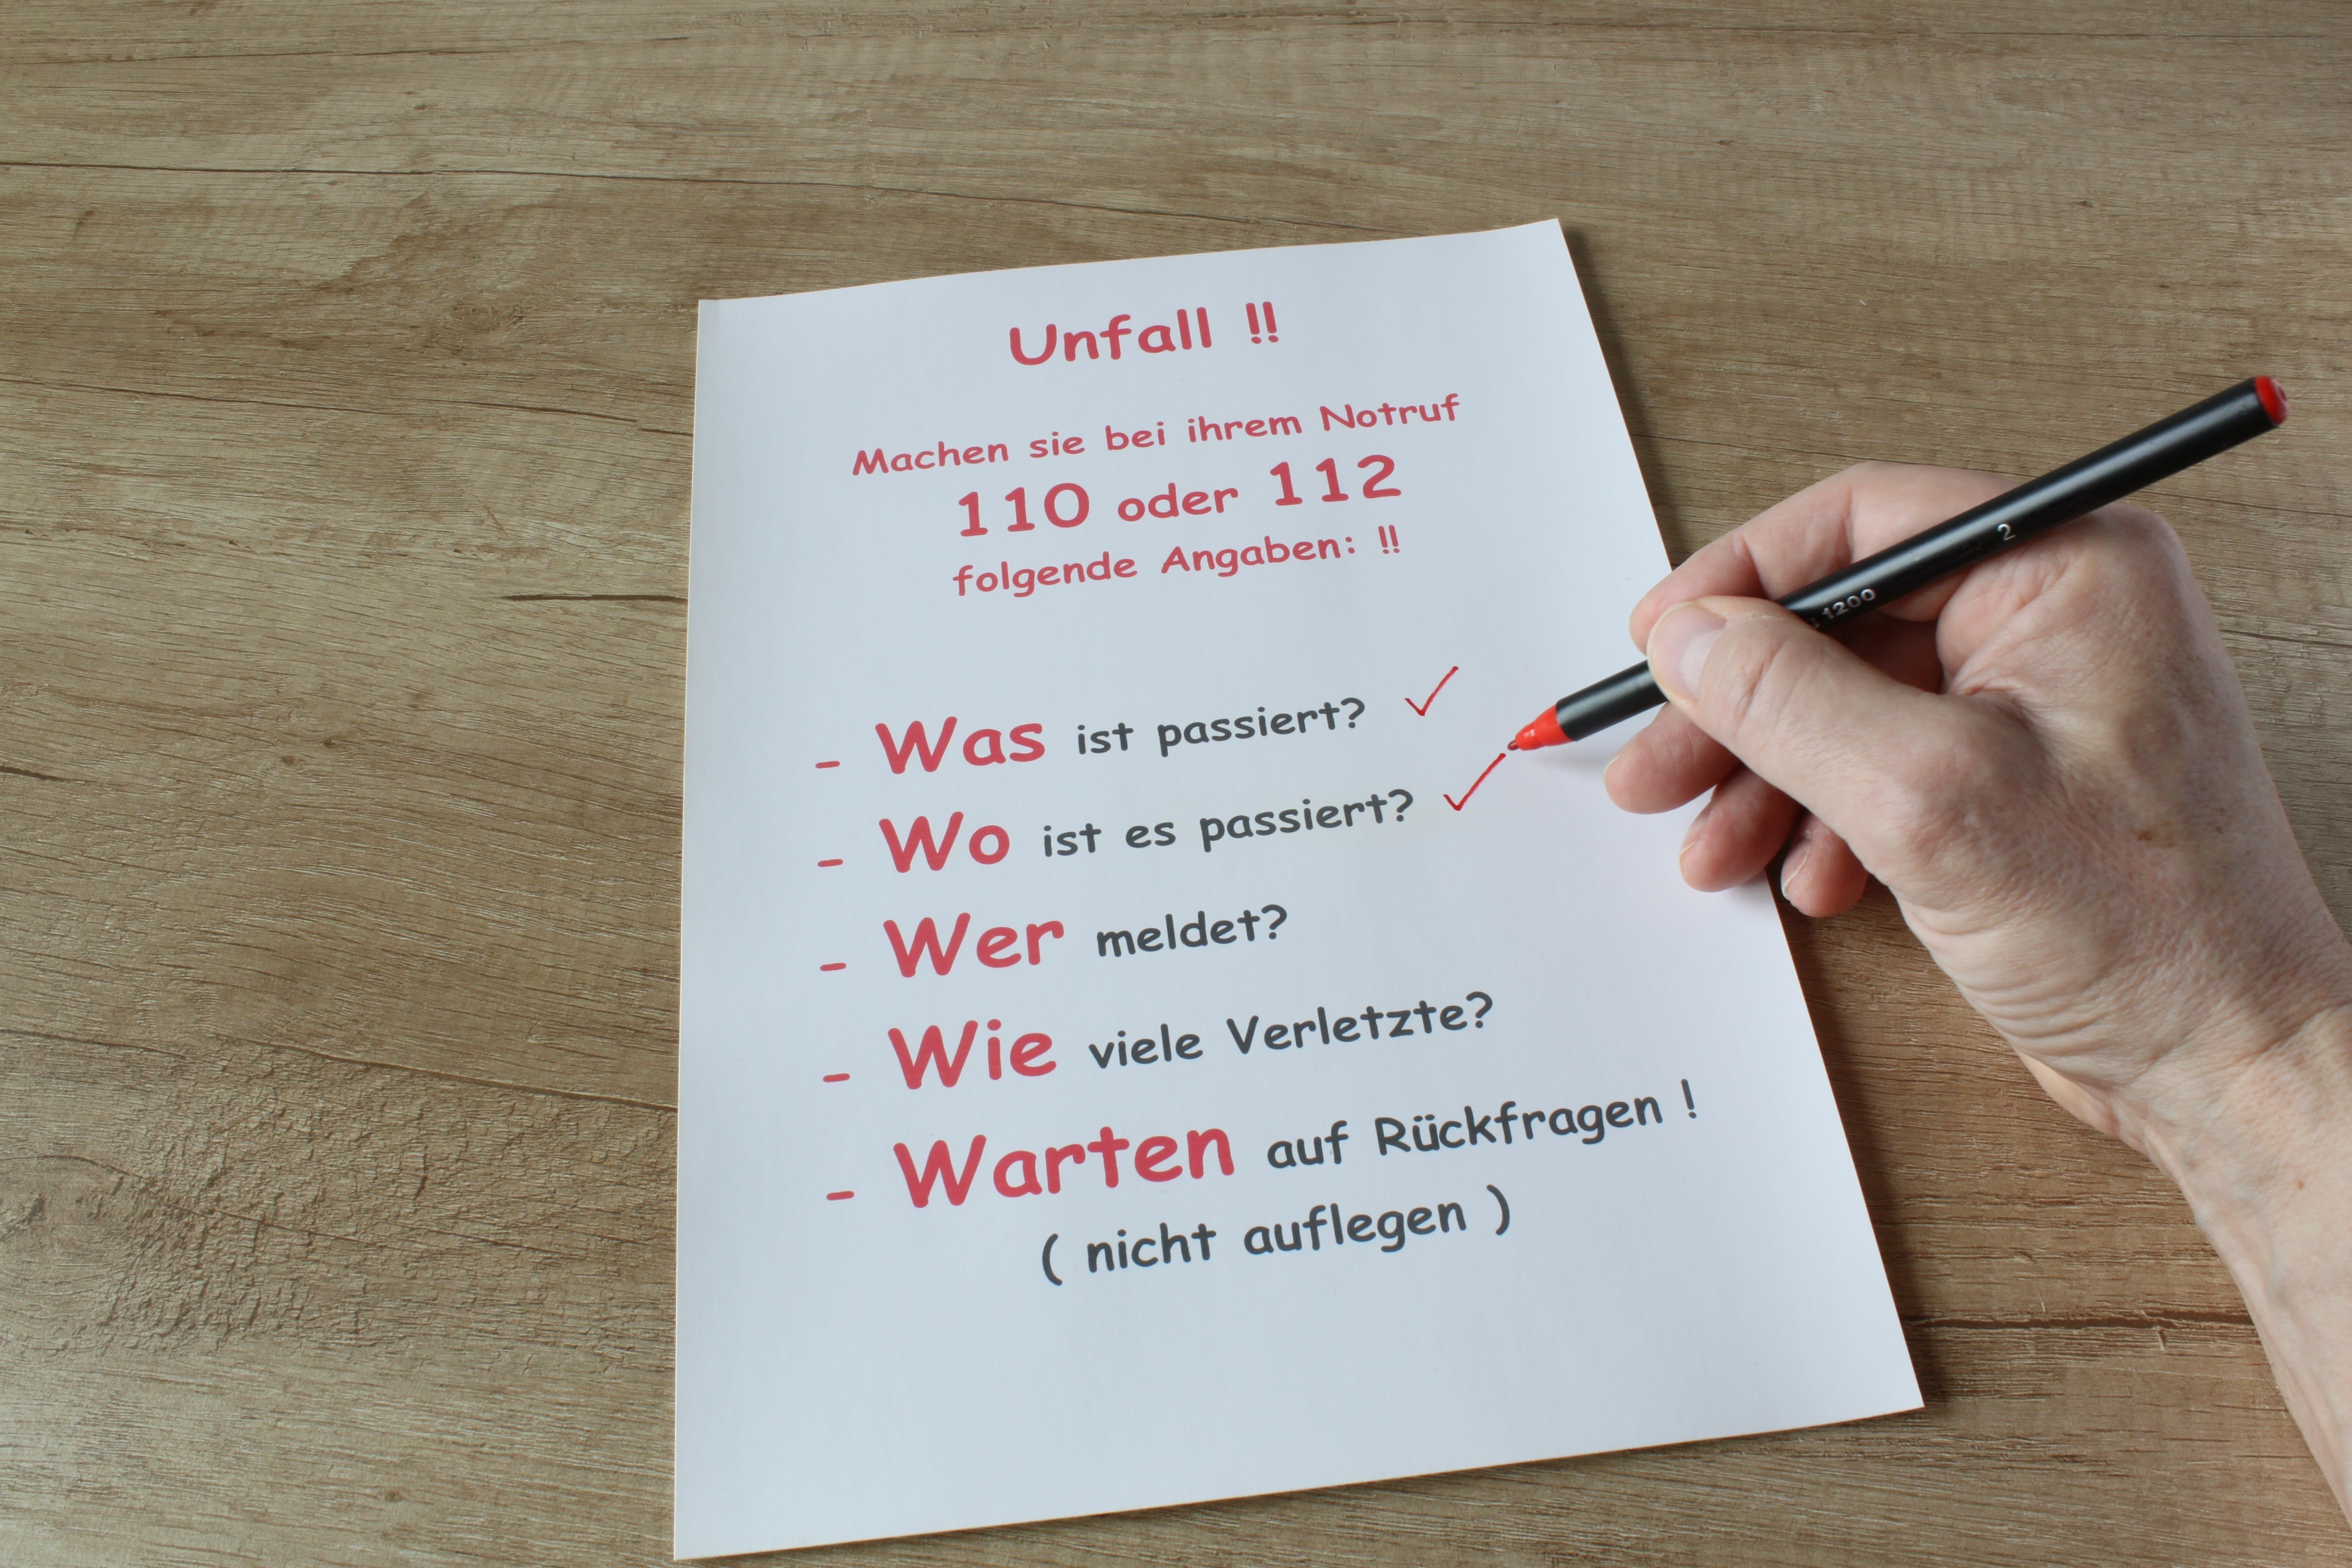 Unfall !!
Machen sie bei ihrem Notruf
110 oder 112
folgende Angaben: !!
- Was ist passiert? ✓
- Wo ist es passiert? ✓
- Wer meldet?
- Wie viele Verletzte?
- Warten auf Rückfragen !
( nicht auflegen )
1200 2